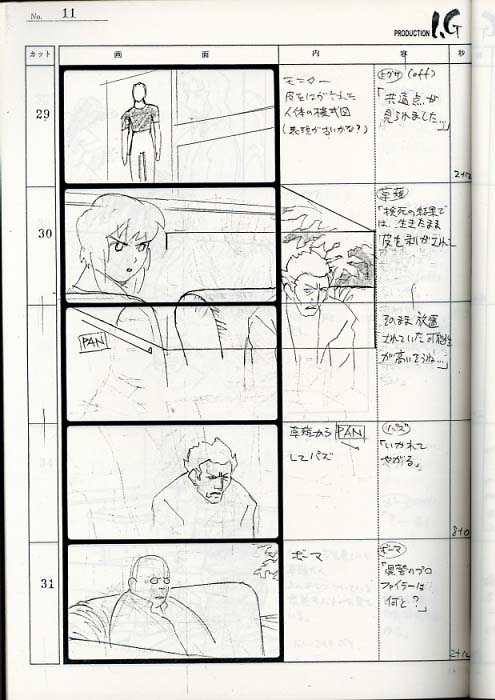 No. 11
PRODUCTION I.G
カット
画
面
内
容
秒
29
モニター
皮をはがされた
人体の模式図
(表現が古いかな?)
トグサ (off)
「共通点が
見られました…」
2+12
30
草薙
「検死の結果で
は、生きたまま
皮を剥がされて
そのまま放置
されていた可能性
が高いそうね…」
PAN
草薙から PAN
してパズ
パズ
「いかれて
やがる」
8+0
31
ボーマ
ボーマ
「県警のプロ
ファイラーは
何と?」
2+12